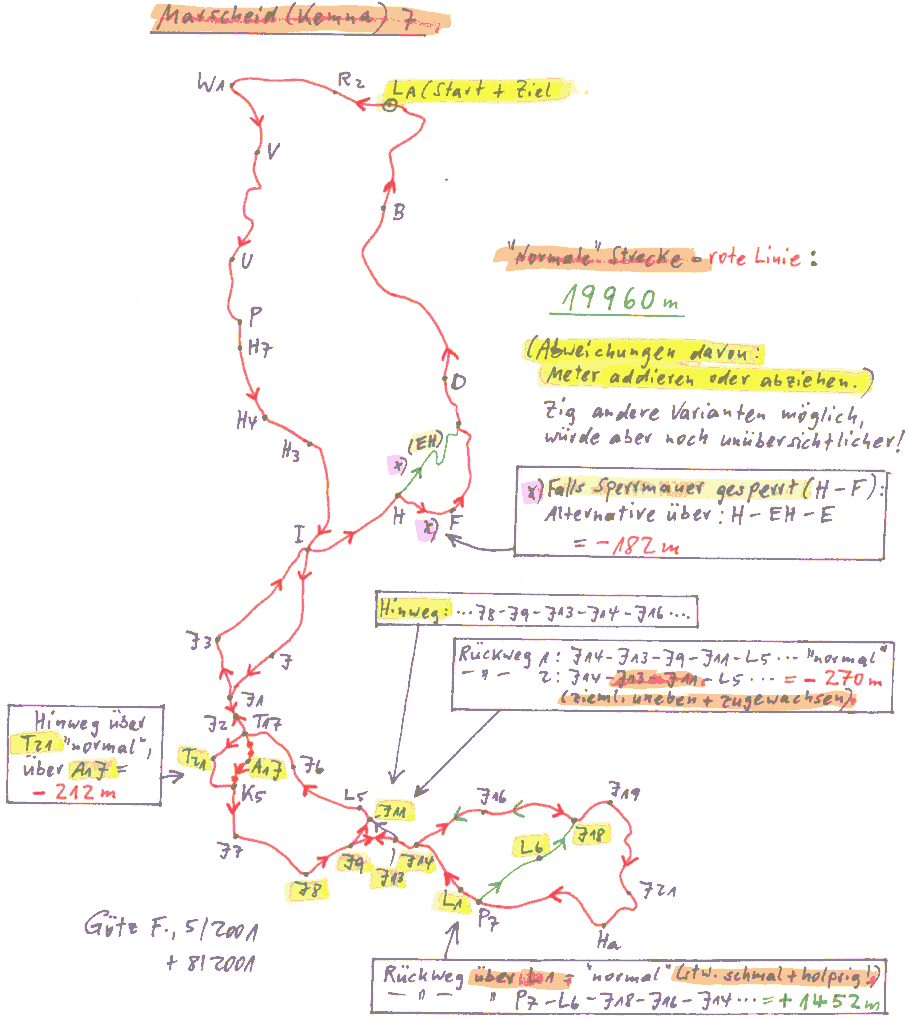 Marscheid (Kemna) 7
W1
R2
LA (Start + Ziel
V
B
U
"Normale" Strecke = rote Linie:
19960 m
P
H7
(Abweichungen davon:
Meter addieren oder abziehen.)
D
Zig andere Varianten möglich,
würde aber noch unübersichtlicher!
H4
H3
(EH)
x)
x) Falls Sperrmauer gesperrt (H-F):
Alternative über: H-EH-E
= -182 m
H
F
x)
I
Hinweg: ...J8-J9-J13-J14-J16...
J3
J
Rückweg 1: J14-J13-J9-J11-L5... "normal"
-"- 2: J14-J13-J11-L5... = -270 m
(zieml. uneben + zugewachsen)
J1
J2
T17
Hinweg über
T21 "normal",
über A17 =
-212 m
T21
A17
J6
K5
L5
J11
J16
J19
J18
J7
J9
J13
J14
L6
J8
L1
P7
J21
Ha
Götz F., 5/2001
+ 8/2001
Rückweg über L1 = "normal" (stw. schmal + holprig!)
-"- " P7-L6-J18-J16-J14... = +1452 m